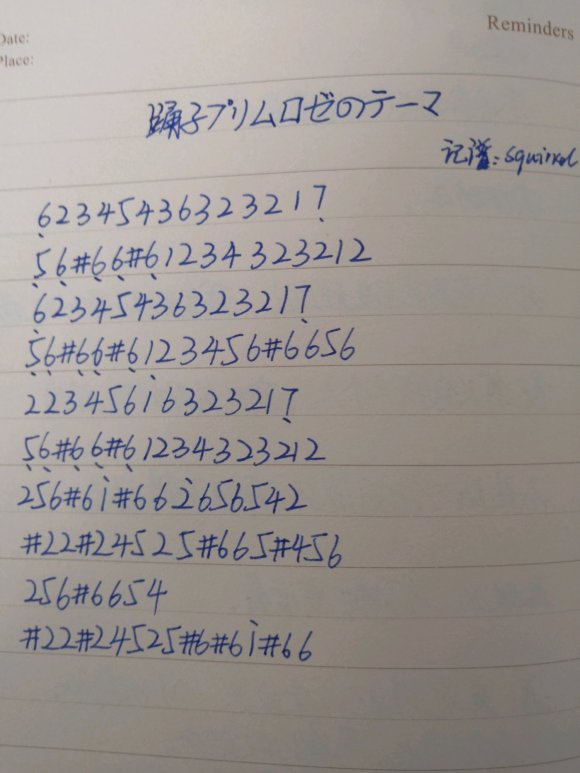 Reminders
Date:
Place:
踊子プリムロゼのテーマ
记谱:squirrel
6̣2345436323217̣
5̣6̣#6̣6̣#6̣1234323212
6̣2345436323217̣
5̣6̣#6̣6̣#6̣123456#6656
223456i̇6323217̣
5̣6̣#6̣6̣#6̣1234323212
256#6i#662̇656542
#22#24525#665#456
256#6654
#22#24525#6#6i#66